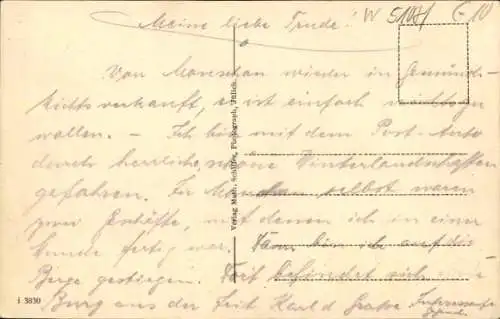 Meine liebe Trude! W 5107/ G 10
Von Monschau wieder in Gemünd.
Nichts verkauft, es ist einfach nichts zu
wollen. — Ich bin mit dem Post-Auto
durch herrliche, schöne Winterlandschaften
gefahren. In Monschau selbst waren
zwei Geschäfte, mit denen ich in einer
Stunde fertig war. Dann bin ich auf die
Berge gestiegen. Dort befindet sich eine
Burg aus der Zeit Karl d. Große
Verlag Math. Schiffer, Photograph, Jülich.
i 3830